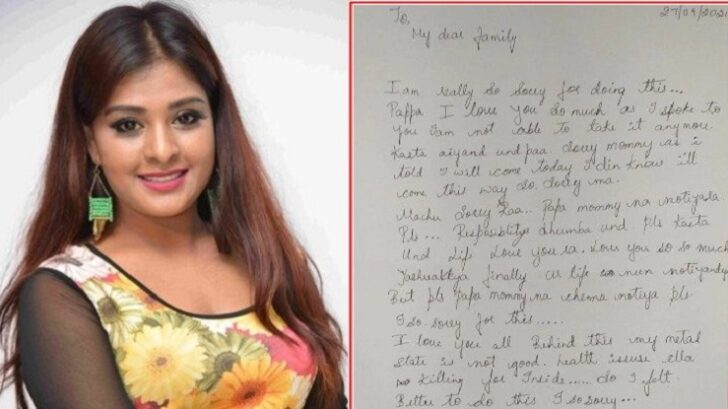 27/09/202
To,
My dear family
I am really so sorry for doing this...
Pappa I love you so much as I spoke to
you iam not able to take it anymore
Kasta aiyand und paa Sorry mommy as i
told I will come today I din know i'll
come this way so sorry ma.
Machu Sorry Raa.. Papa mommy na notiyala
Pls... dhumba und pls Kasta
Und Life Love you ra. Love you so so much
finally life nun
But pls Papa mommy na chenna notiya pls
I so sorry for this.....
I love you all Behind this my metal
state is not good. health issuse ella
Killing for Inside...... So I felt
Better to do this I so sorry...